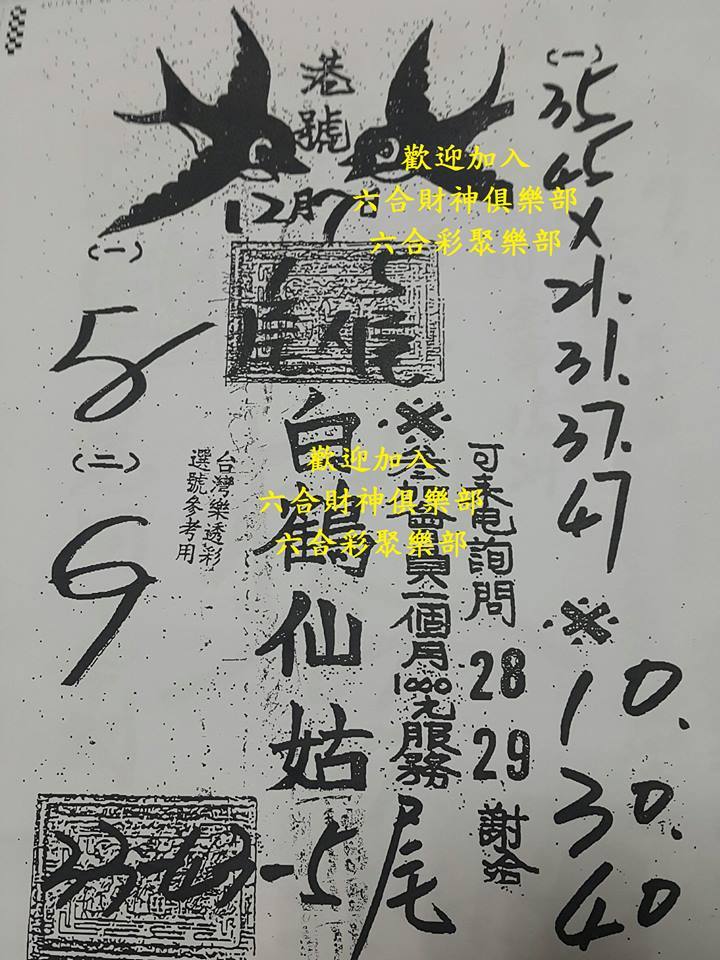 港號
12月7
(一)
5
(二)
9
台灣樂透彩
選號參考用
白鶴仙姑
33-43-5尾
歡迎加入
六合財神俱樂部
六合彩聚樂部
歡迎加入
六合財神俱樂部
六合彩聚樂部
※參加會員一個月1000元服務
可來電詢問
28
29
謝洽
(一)
35
45
X
21.
31.
37.
47
※
10.
30.
40